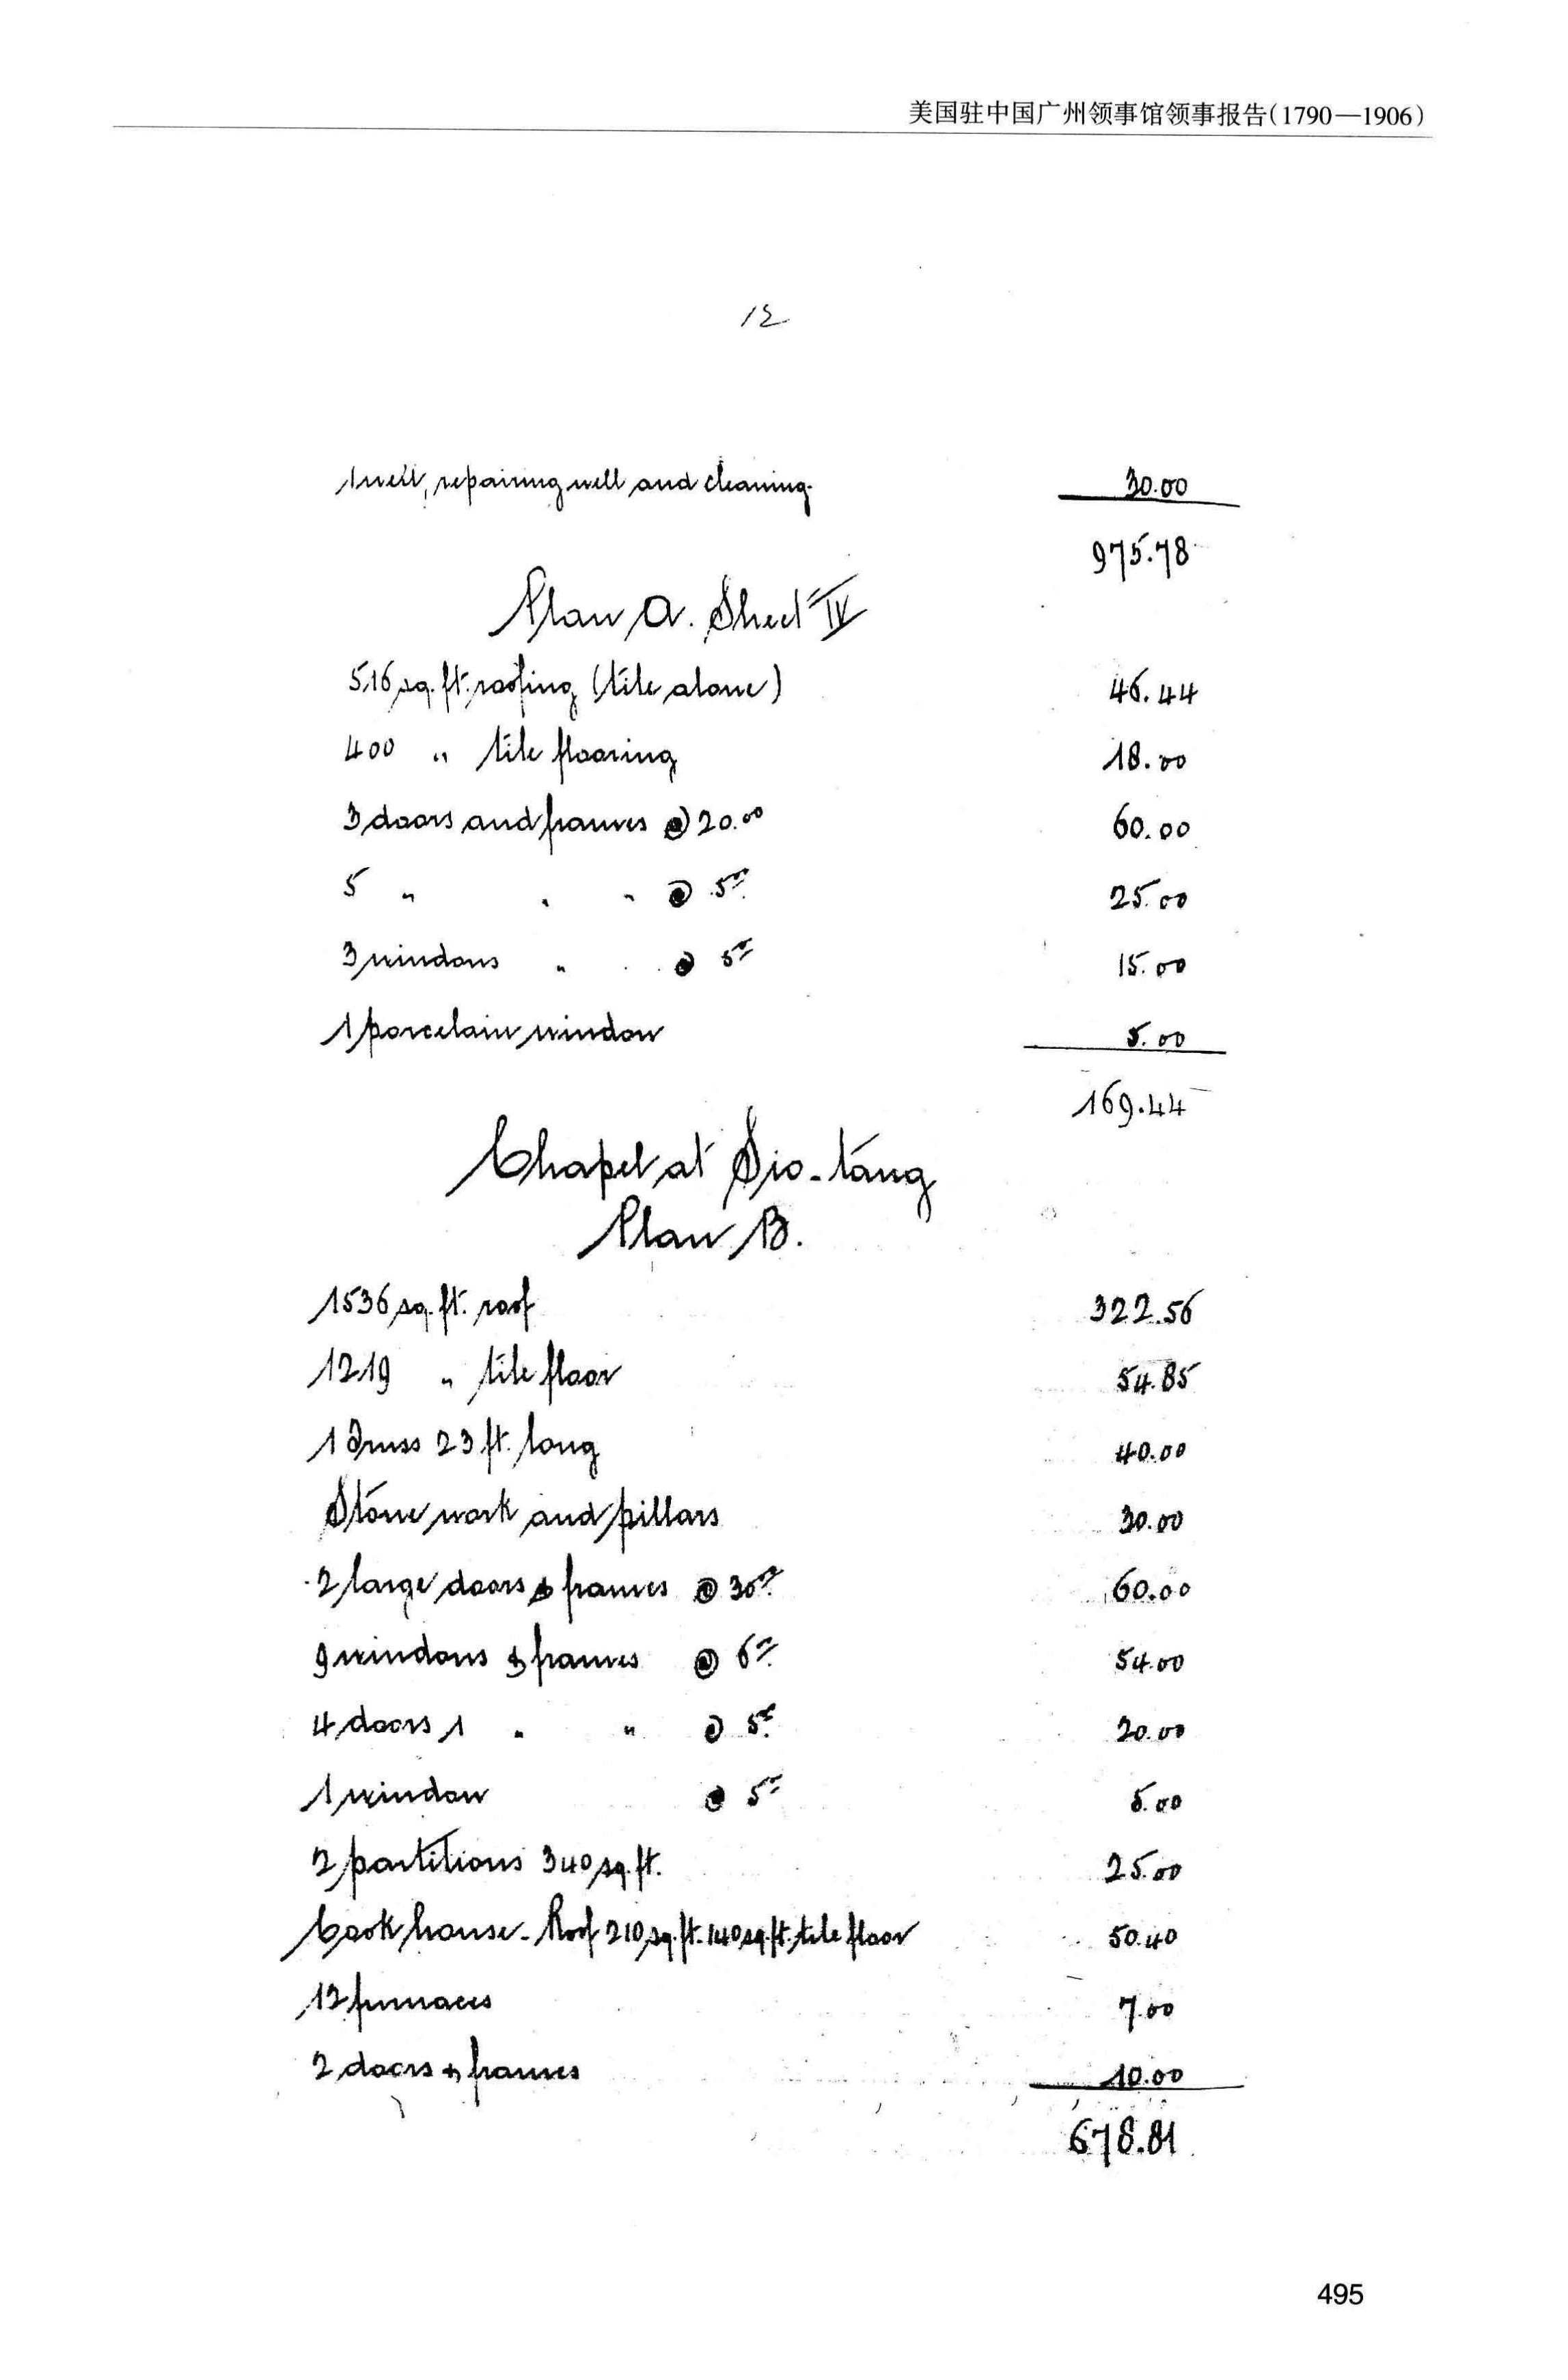 美国驻中国广州领事馆领事报告(1790—1906)
12
1 well, repairing well and cleaning. 30.00
975.78
Plan A. Sheet IV
516 sq. ft. roofing (tile alone) 46.44
400 " tile flooring 18.00
3 doors and frames @ 20.00 60.00
5 " " " @ 5.00 25.00
3 windows " @ 5.00 15.00
1 porcelain window 5.00
169.44
Chapel at Sio-tang
Plan B.
1536 sq. ft. roof 322.56
1219 " tile floor 54.85
1 Truss 23 ft. long 40.00
Stone work and pillars 30.00
2 large doors & frames @ 30.00 60.00
9 windows & frames @ 6.00 54.00
4 doors 1 " " @ 5.00 20.00
1 window @ 5.00 5.00
2 partitions 340 sq. ft. 25.00
Cook house - Roof 210 sq. ft. 140 sq. ft. tile floor 50.40
12 furnaces 7.00
2 doors & frames 10.00
678.81
495